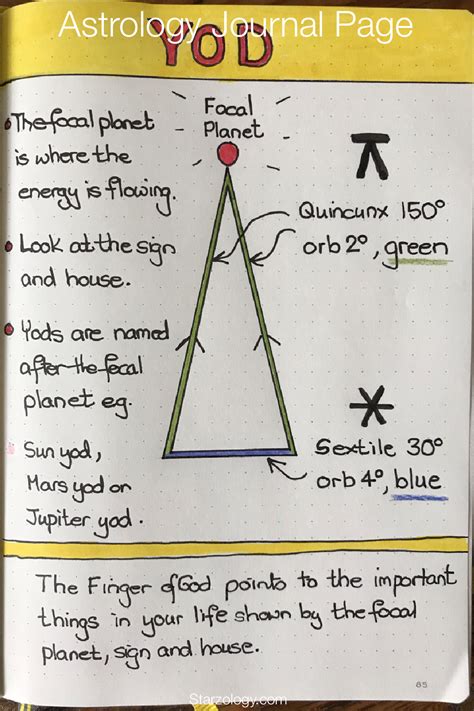 Astrology Journal Page
YOD
Focal
Planet
• The focal planet
is where the
energy is flowing.
• Look at the sign
and house.
• Yods are named
after the focal
planet eg.
Sun yod,
Mars yod or
Jupiter yod.
Quincunx 150°
orb 2°, green
Sextile 30°
orb 4°, blue
The Finger of God points to the important
things in your life shown by the focal
planet, sign and house.
85
Starzology.com